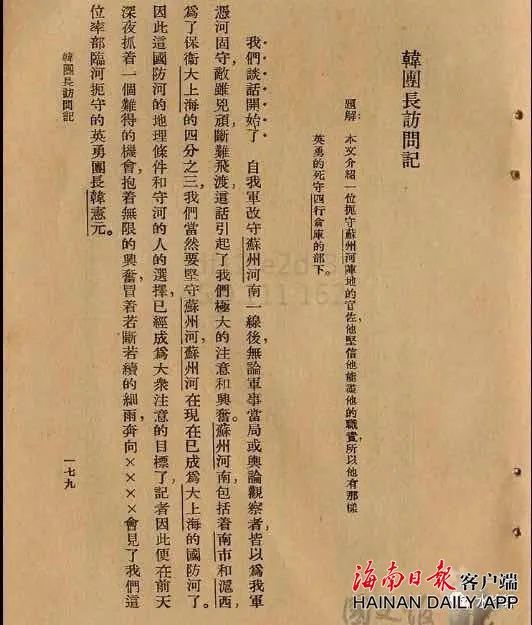 韓團長訪問記
題解:本文介紹一位扼守蘇州河陣地的官佐,他堅信他能盡他的職責,所以他有那樣
英勇的死守四行倉庫的部下。
我們談話開始了。自我軍改守蘇州河南一線後,無論軍事當局或輿論觀察者,皆以爲我軍
憑河固守,敵雖兇頑,斷難飛渡,這話引起了我們極大的注意和興奮。蘇州河南,包括着南市和滬西,
爲了保衛大上海的四分之三,我們當然要堅守蘇州河,蘇州河在現在已成爲大上海的國防河了。
因此這國防河的地理條件和守河的人的選擇,已經成爲大衆注意的目標了,記者因此便在前天
深夜抓着一個難得的機會,抱着無限的興奮,冒着若斷若續的細雨,奔向××××會見了我們這
位率部臨河扼守的英勇團長韓憲元。
韓團長訪問記
一七九
海南日报 客户端
HAINAN DAILY APP